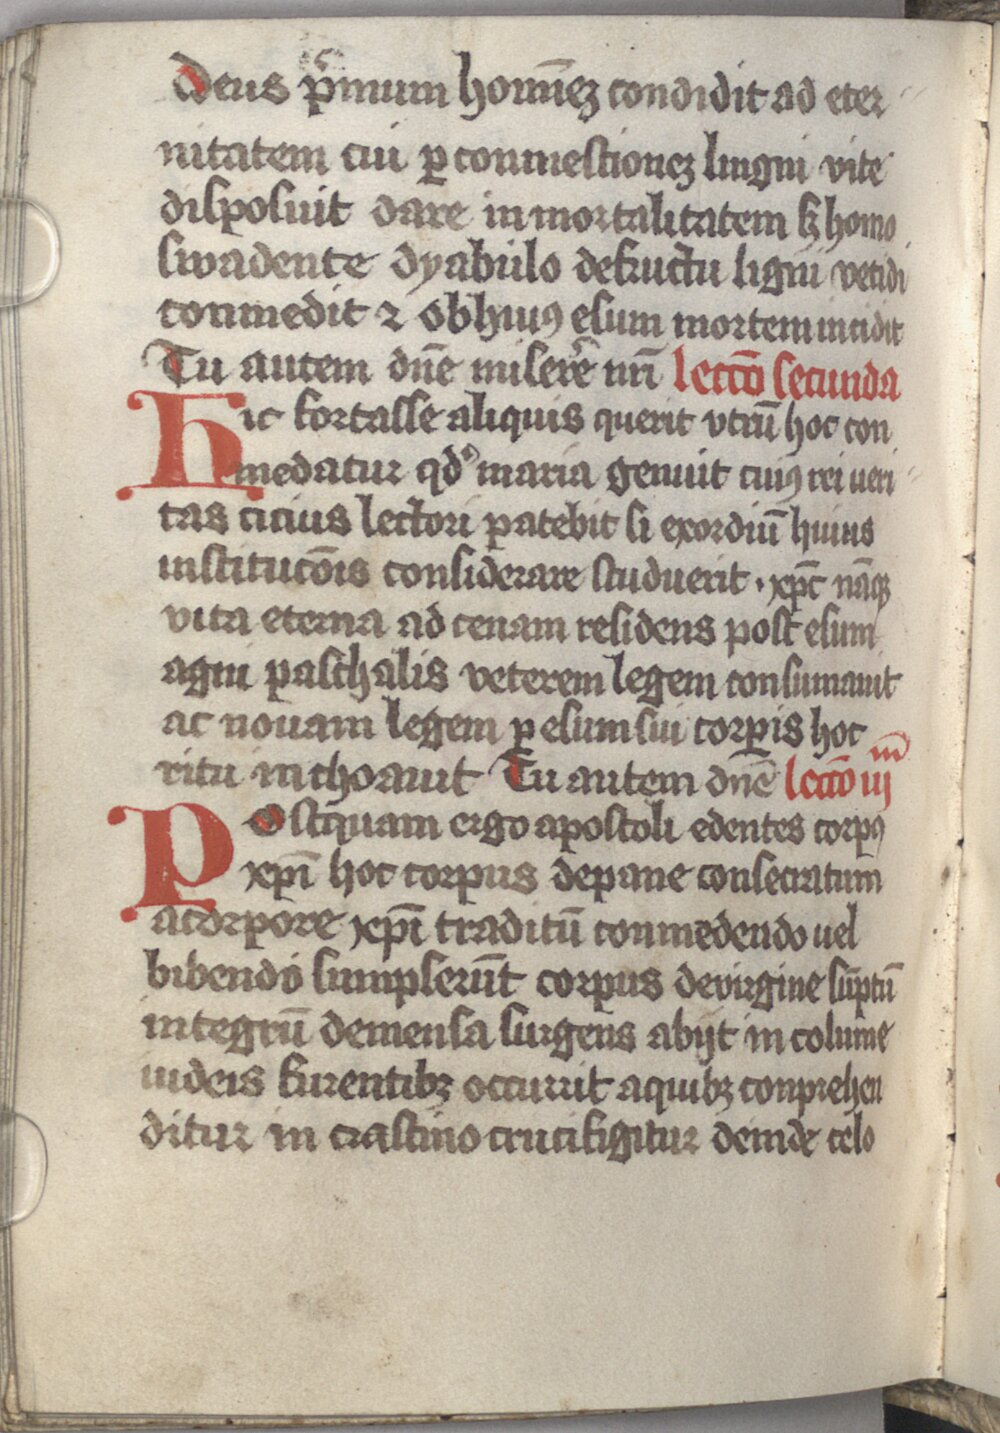 Deus pͥmum homīeꝫ condidit ad eter
nitatem cui ꝑ conmestioneꝫ lingni vite
disposuit dare inmortalitatem sꝫ homo
swadente dyabulo de fructu ligni vetidi
conmedit ⁊ ob huiꝰ esum mortem incidit
Tu autem dn̄e miserē nr̄i lectō secunda
Hic fortasse aliquis querit vtrū hoc con
medatur qd maria genuit cuiꝰ rei ueri
tas cicius lectori patebit si exordiū huius
institucōis considerare studuerit · xp̄c nāqꝫ
vita eterna ad cenam residens post esum
agni paschalis veterem legem consumauit
ac nouam legem ꝑ esum sui corꝑis hoc
ritu inchoauit Tu autem dn̄e lectō iij
Postquam ergo apostoli edentes corpꝰ
xp̄i hoc corpus de pane consecratum
a corpore xp̄i traditū conmedendo uel
bibendo sumpserūt corpus de virgine sūptū
integrū de mensa surgens abijt in columē
iudeis furentibꝫ occurrit a quibꝫ conprehen
ditur in crastino crucifigitur deinde celo